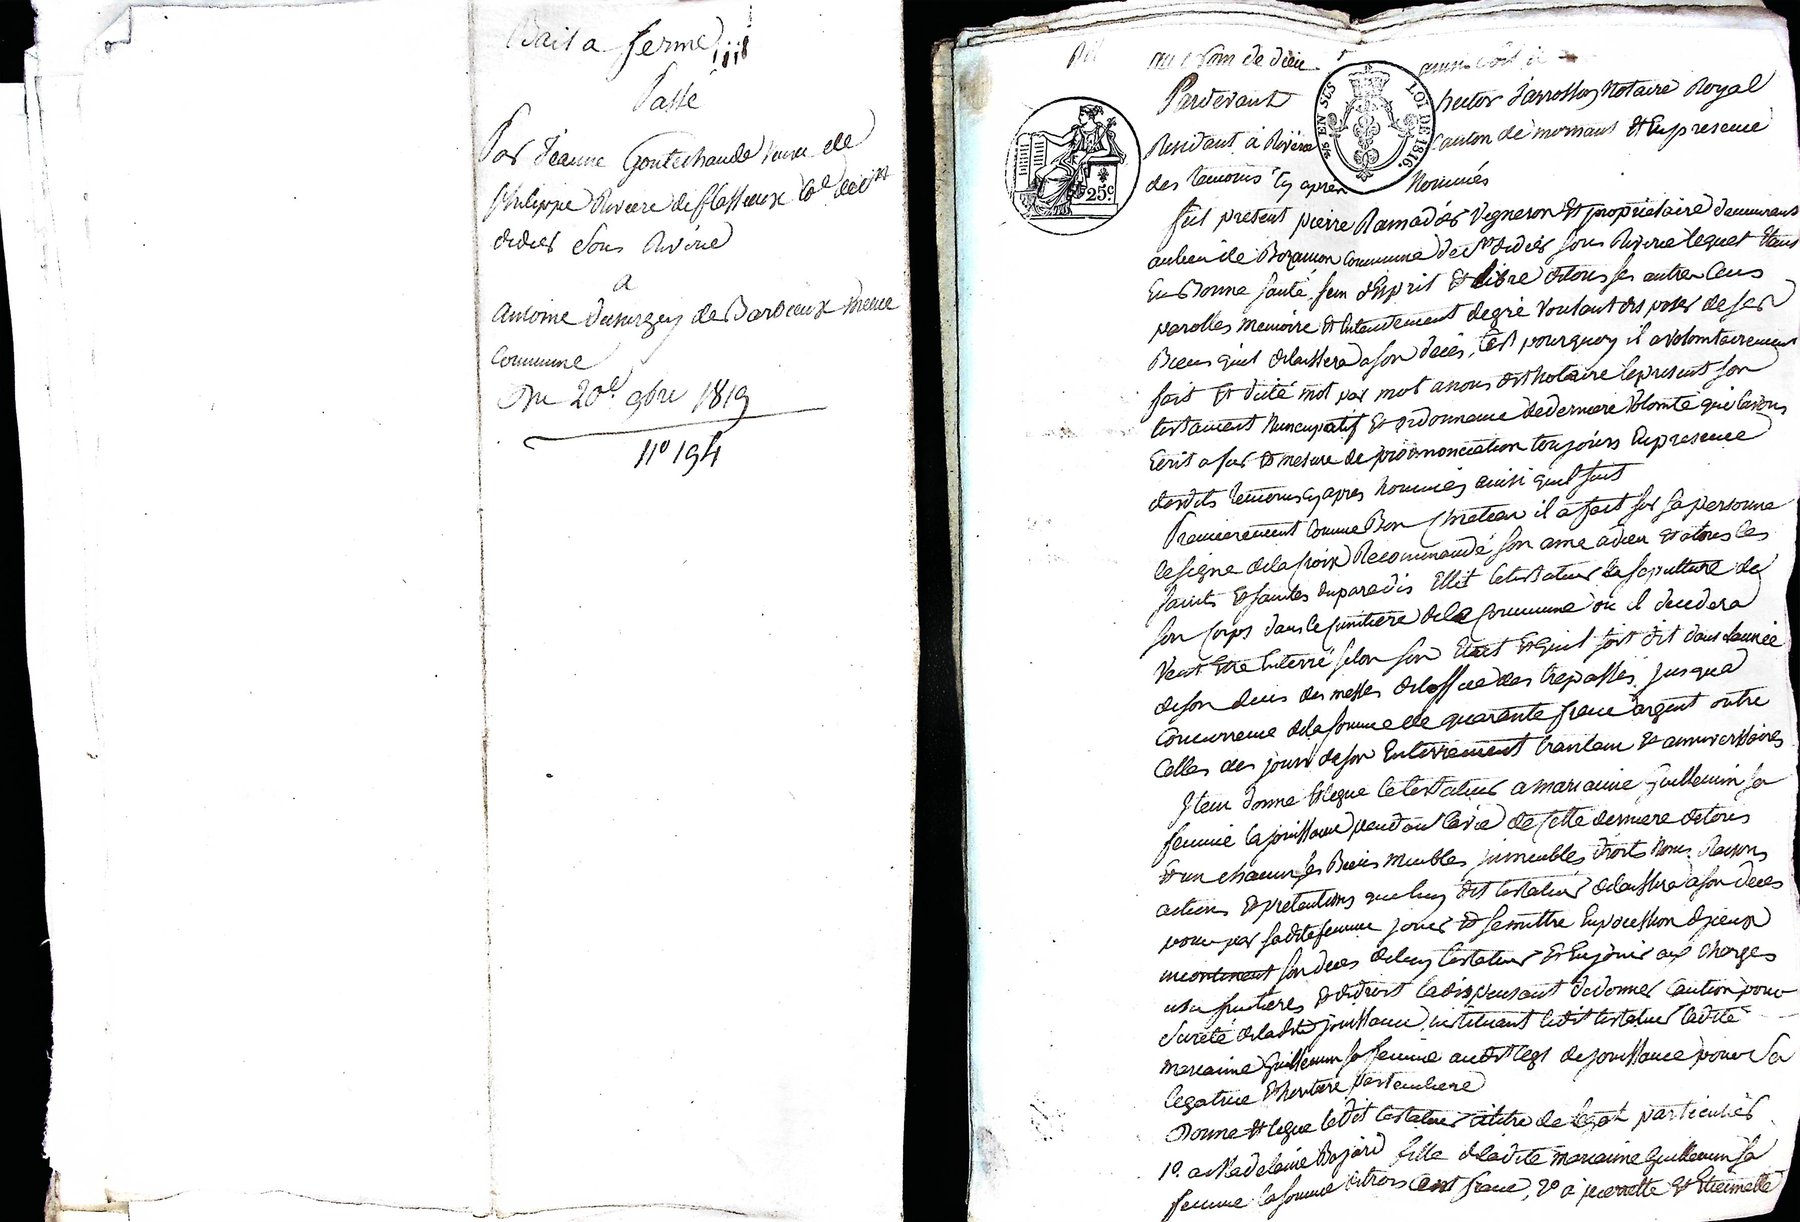 Bail a ferme
Passé
Par Jeanne Goutechaude veuve de
philippe Riviere de flassieux
didier Sous Riverie
a
antoine Dumurgey de Bardieux meme
Commune
Du 20e 9bre 1819
n° 194
au Nom de dieu
Pardevant hector Notaire Royal
Residant a Riverie Canton de mornant Et En presence
des temoins Cy apres Nommés
25 c.
EN SUS
LOI DE 1816.
fut present pierre Ramadier Vigneron Et proprietaire demeurant
au lieu de Bozançon Commune de St didier sous Riverie lequel Etant
En Bonne santé, sein d'Esprit Et libre de tous ses autres sens
parolles memoire Et Entendement de gré Voulant disposer de ses
Biens quil delaissera a son deces, C'est pourquoy il a volontairement
fait Et dicté mot par mot a nous dit Notaire le present son
testament Nuncupatif Et ordonnance de derniere Volonté que l'avons
Ecrit a fur Et mesure de prononciation toujours En presence
desdits temoins cy apres nommés ainsi quil suit
Premierement Comme Bon Chretien il a fait sur sa personne
le signe de la Croix Recommandé son ame a dieu Et a tous les
saints Et saintes du paradis Ellit le testateur la sepulture de
son Corps dans le Cimitiere de la Commune ou il decedera
Veut Etre Enterré selon son Etat Et quil soit dit dans lannée
de son deces des messes de loffice des trepassés jusqu'a
Concurrence de la somme de quarante franc argent outre
Celles des jours de son Enterrement trantain Et anniversaires
Item donne Et legue le testateur a marianne Guillemin sa
femme la jouissance pendant la vie de Cette derniere de tous
Et un chacun ses Biens meubles immeubles droits Noms Raisons
actions Et pretentions que luy dit testateur delaissera a son deces
pour par sadite femme jouir Et se mettre En possession d'jceux
incontinent son deces de luy testateur Et En jouir aux Charges
usu fruitieres Et de droit la dispensant de donner Caution pour
Sureté de ladite jouissance, instituant ledit testateur ladite
marianne Guillemin sa femme audit legs de jouissance pour sa
legatrice Et heritiere particuliere
Donne Et legue ledit testateur a titre de legat particulier
1° a Madelaine Bajard fille de ladite marianne Guillemin sa
femme la somme de trois Cent franc, 2° a pierrette Et Etiennette